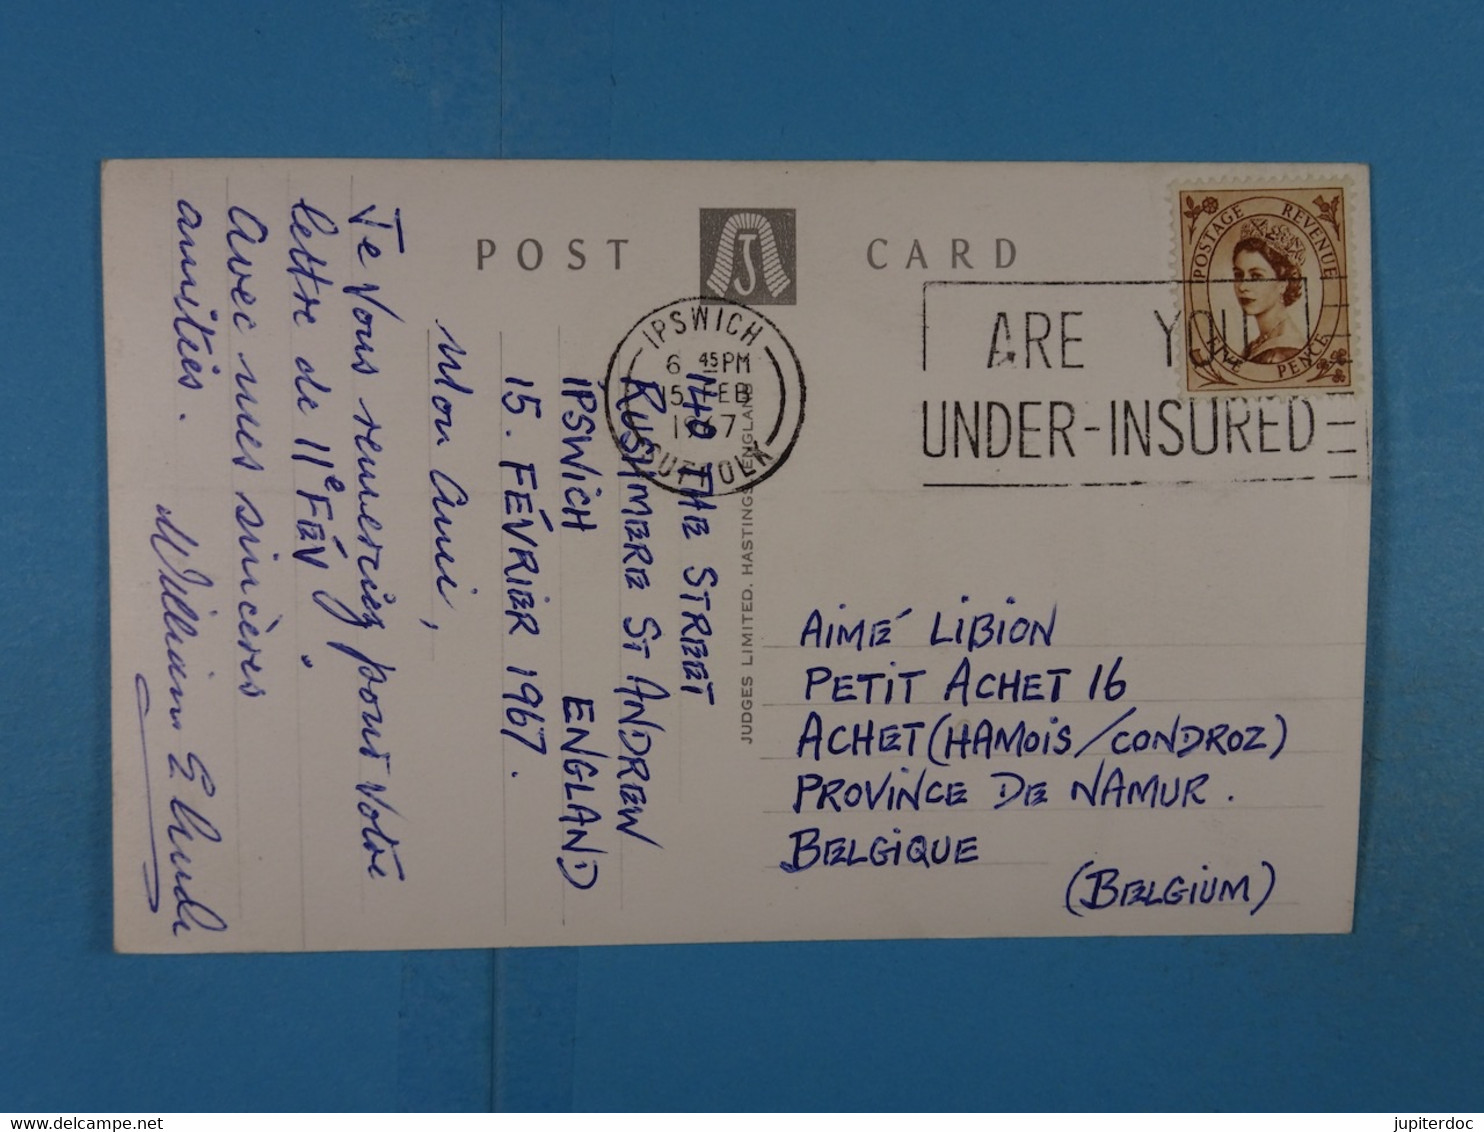 POST CARD
J
POSTAGE REVENUE
FIVE PENCE
IPSWICH
6 45PM
15 FEB
1967
SUFFOLK
ARE YOU
UNDER-INSURED
JUDGES LIMITED. HASTINGS, ENGLAND
140 THE STREET
RUSHMERE ST ANDREW
IPSWICH ENGLAND
15. FÉVRIER 1967.
Mon Ami,
Je Vous remerciez pour votre
lettre de 11e FÉV.
Avec mes sincères
amitiés.
William E
AIMÉ LIBION
PETIT ACHET 16
ACHET (HAMOIS/CONDROZ)
PROVINCE DE NAMUR.
BELGIQUE
(BELGIUM)
jupiterdoc